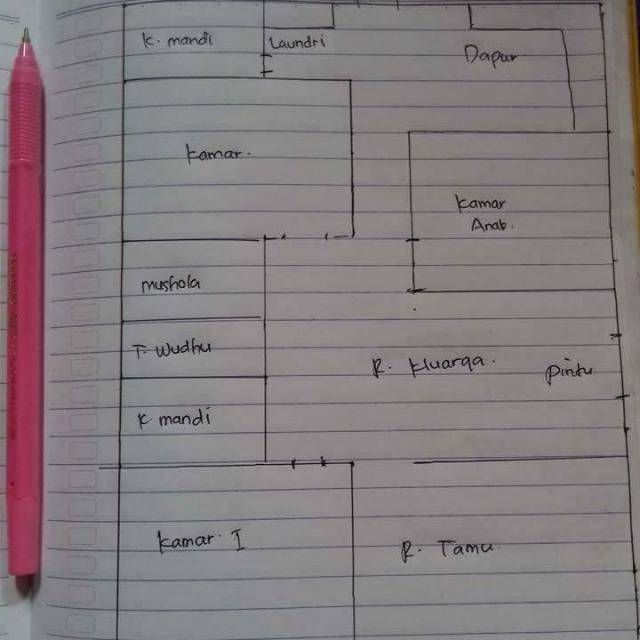 K. mandi
Laundri
Dapur
Kamar.
Kamar
Anak.
mushola
T. Wudhu
R. Kluarga.
Pintu
K mandi
Kamar. I
R. Tamu.